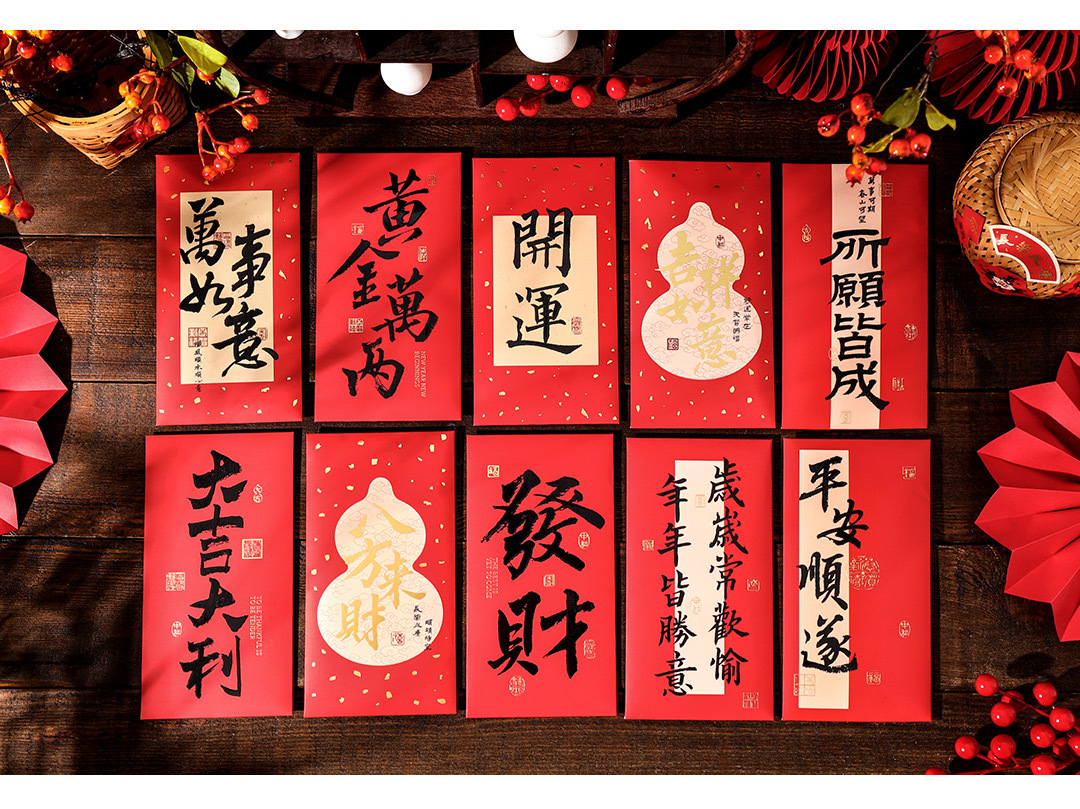 萬事如意
黃金萬兩
NEW YEAR NEW
BEGINNINGS
開運
吉祥如意
所願皆成
大吉大利
八方來財
發財
歲歲常歡愉
年年皆勝意
平安順遂